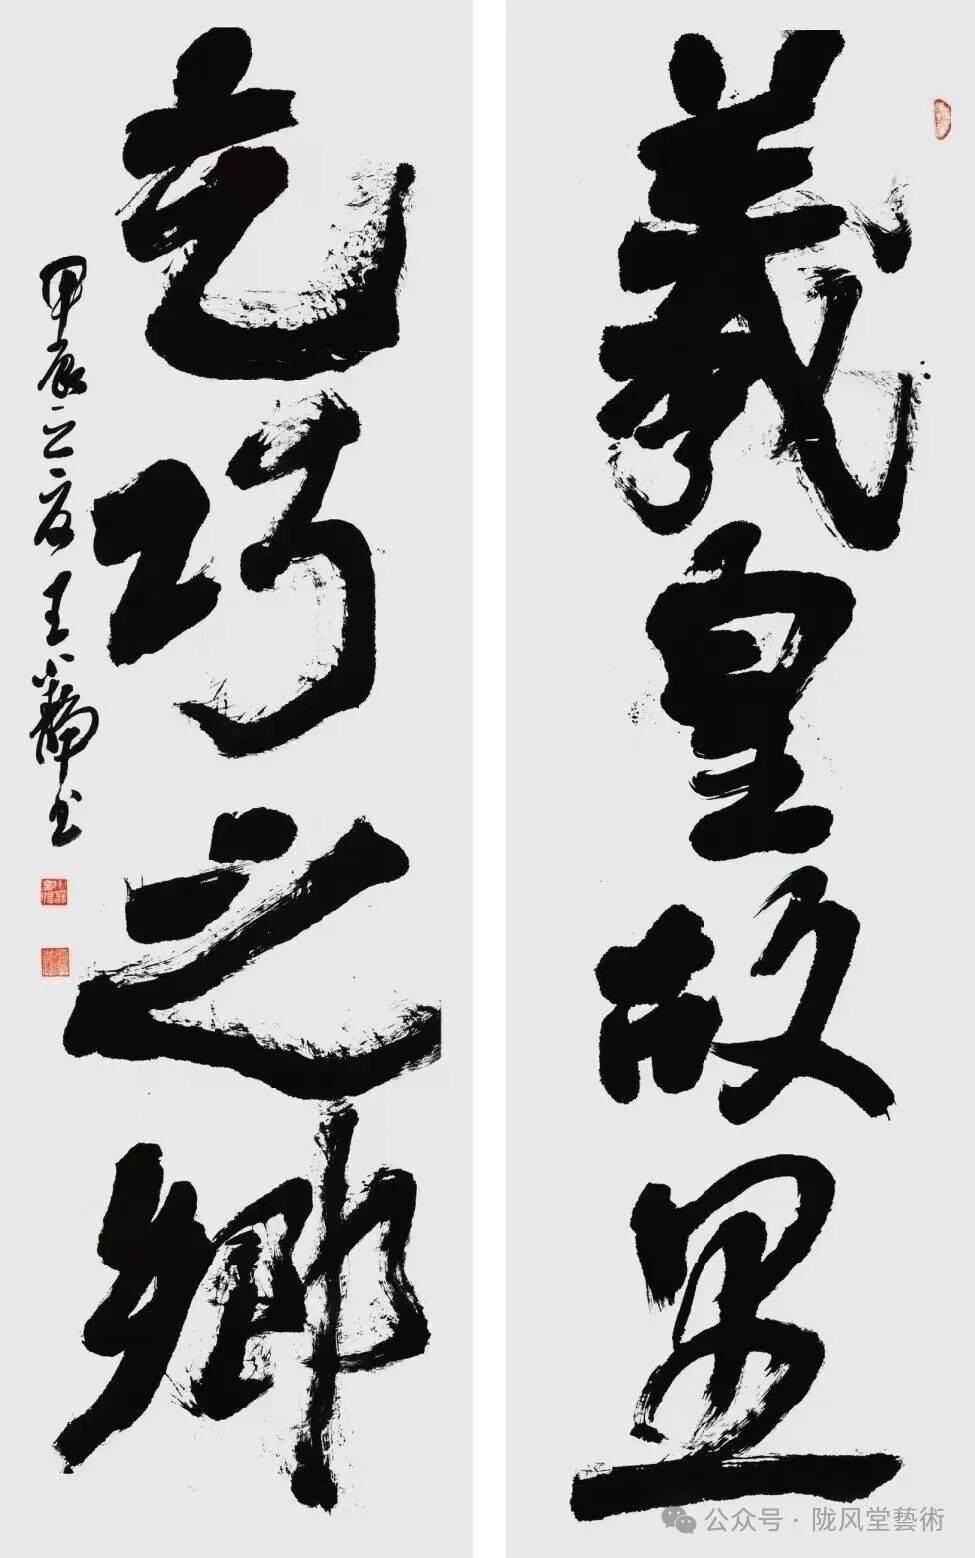 羲皇故里
乞巧之鄉
甲辰之夏王小靜书
公众号·陇风堂藝術